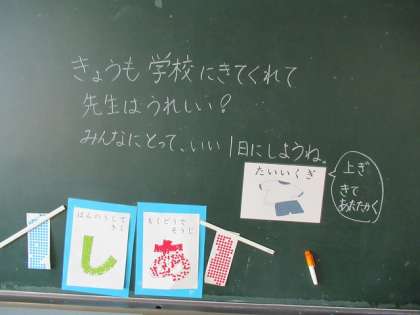 きょうも学校にきてくれて
先生はうれしい？
みんなにとって、いい1日にしようね。
たいいくぎ
上ぎ
きて
あたたかく
はんのうして
きく
もくどうで
そうじ
し
あ